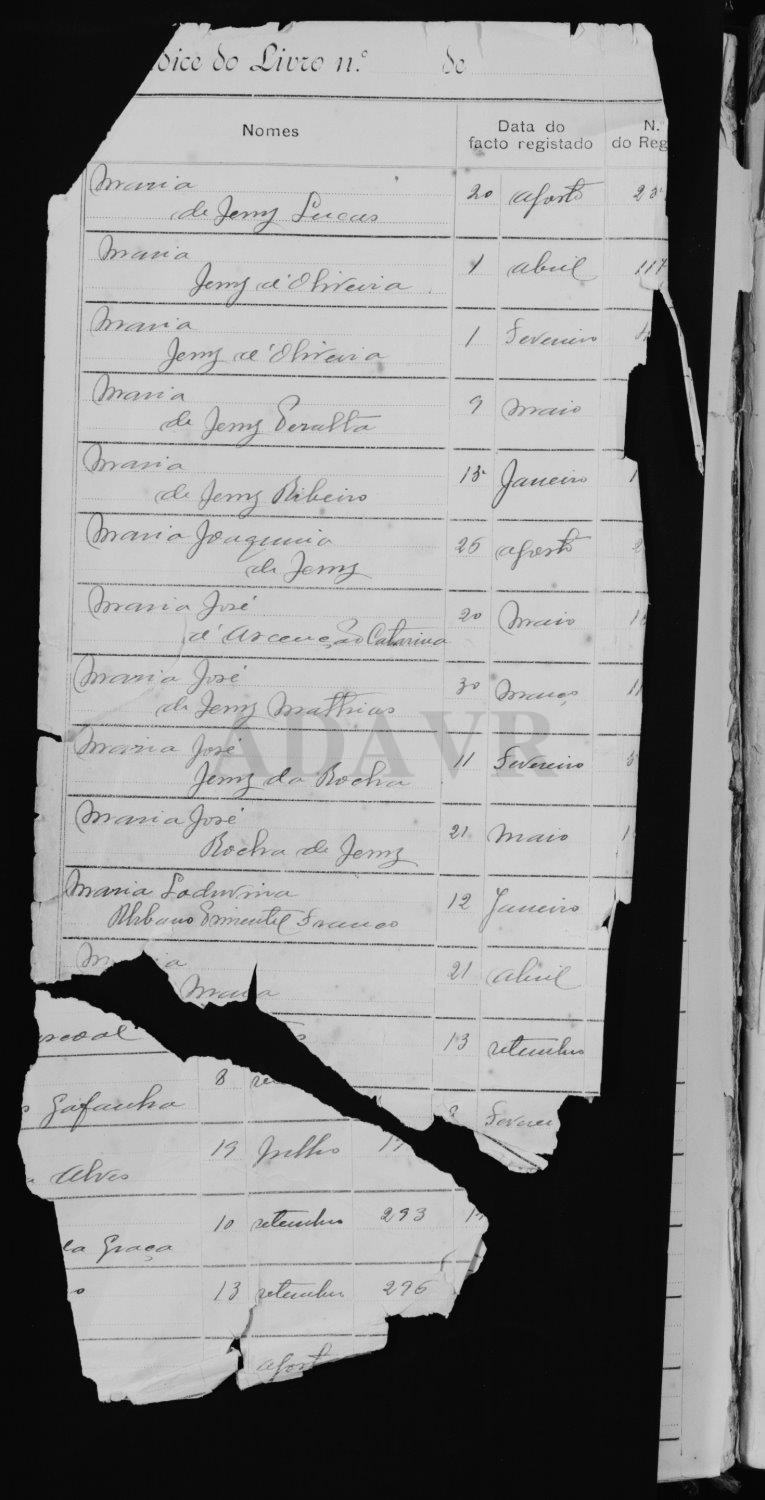 dice do Livro n.º de
Nomes
Data do
facto registado
N.
do Reg
Maria
de Jesus Lucas
20 agosto
Maria
Jesus d'Oliveira
1 abril 117
Maria
Jesus d'Oliveira
1 Fevereiro
Maria
de Jesus Peralta
9 Maio
Maria
de Jesus Ribeiro
15 Janeiro 1
Maria Joaquina
de Jesus
26 agosto 2
Maria José
d'Ascenção Catarina
20 Maio
Maria José
de Jesus Mathias
30 Março 11
Maria José
Jesus da Rocha
11 Fevereiro
Maria José
Rocha de Jesus
21 Maio 1
Maria Ludovina
Urbano Pimentel Franco
12 Janeiro
21 abril
Maria
13 setembro
8
Gafanha
Feverei
19 Julho
Alves
10 setembro 293
la Graça
o
13 setembro 296
agost
ADAVR